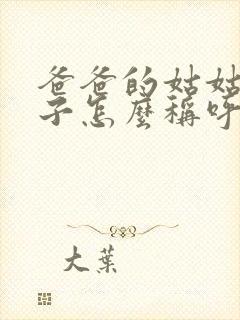 爸爸的姑姑
子怎麼稱呼
大葉